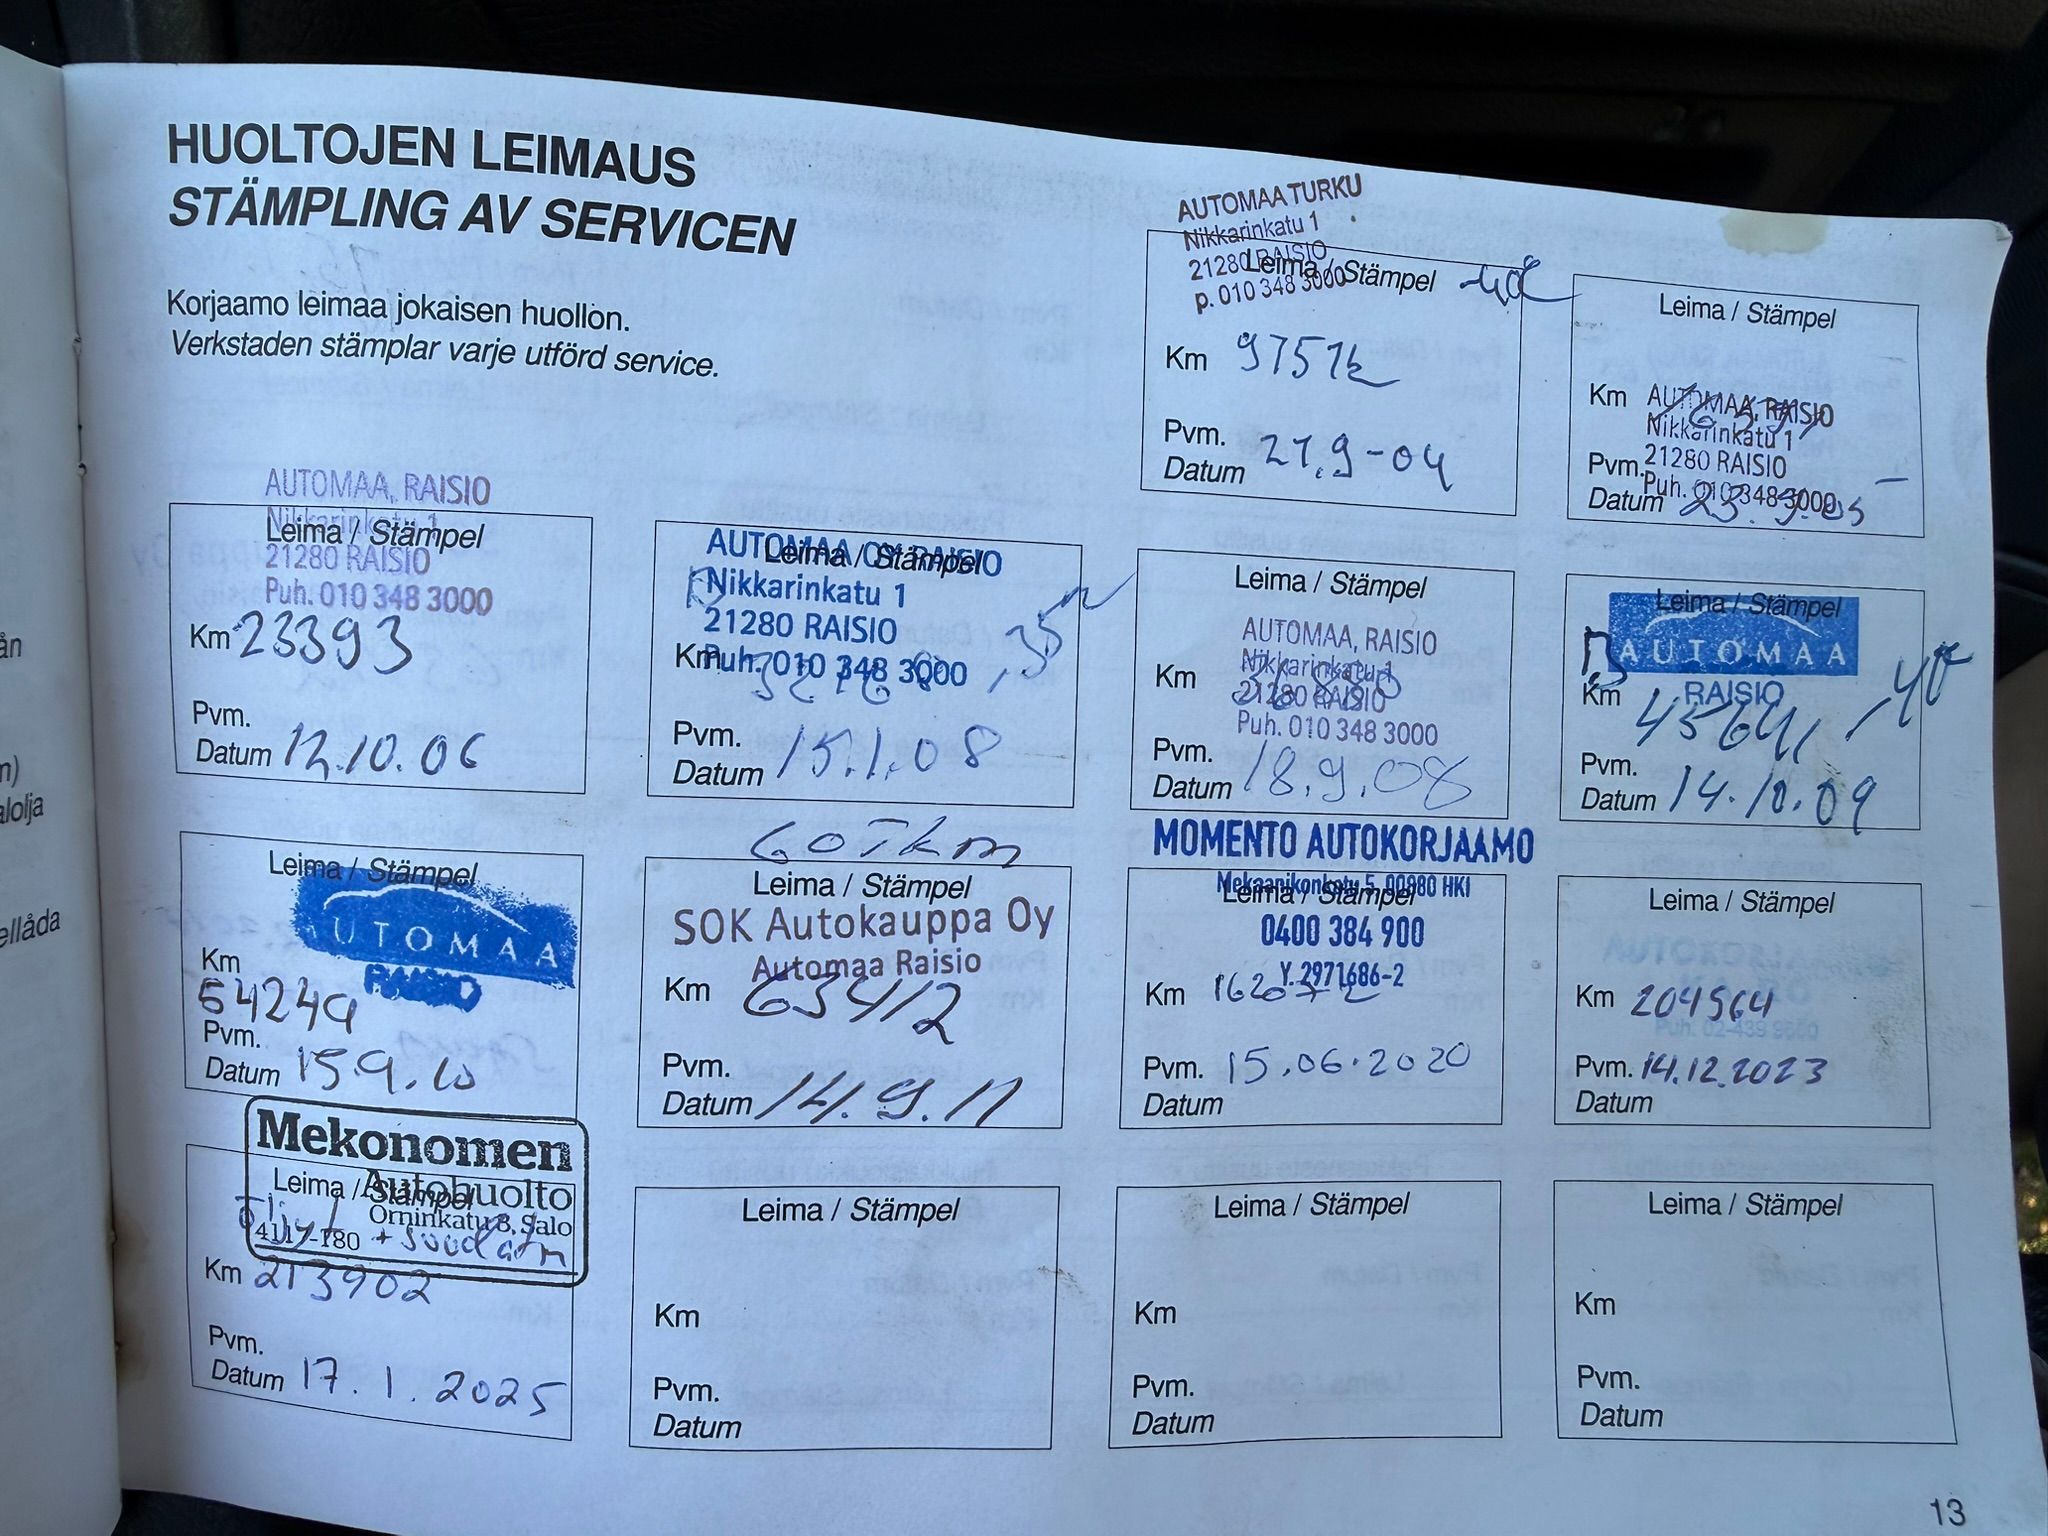 HUOLTOJEN LEIMAUS
STÄMPLING AV SERVICEN
Korjaamo leimaa jokaisen huollon.
Verkstaden stämplar varje utförd service.
AUTOMAA TURKU
Nikkarinkatu 1
21280 RAISIO
p. 010 348 3000
Leima / Stämpel
Km
Pvm. 21.9-04
Datum
Leima / Stämpel
Km
AUTOMAA, RAISIO
Nikkarinkatu 1
21280 RAISIO
Puh. 010 348 3000
Pvm.
Datum 23.9.05
AUTOMAA, RAISIO
Nikkarinkatu 1
21280 RAISIO
Puh. 010 348 3000
Leima / Stämpel
Km 23393
Pvm.
Datum 12.10.06
AUTOMAA OY RAISIO
Nikkarinkatu 1
21280 RAISIO
Puh. 010 348 3000
Leima / Stämpel
Km
Pvm.
Datum 15.1.08
Leima / Stämpel
AUTOMAA, RAISIO
Nikkarinkatu 1
21280 RAISIO
Puh. 010 348 3000
Km
Pvm.
Datum 18.9.08
Leima / Stämpel
AUTOMAA
RAISIO
Km 45641
Pvm.
Datum 14.10.09
Leima / Stämpel
AUTOMAA
RAISIO
Km
54249
Pvm.
Datum 15.9.10
60Tkm
Leima / Stämpel
SOK Autokauppa Oy
Automaa Raisio
Km 63412
Pvm.
Datum 14.9.11
MOMENTO AUTOKORJAAMO
Mekaanikonkatu 5, 00880 HKI
Leima / Stämpel
0400 384 900
Y. 2971686-2
Km 162072
Pvm. 15.06.2020
Datum
Leima / Stämpel
Km 204564
Puh. 02-439 9600
Pvm. 14.12.2023
Datum
Mekonomen
Autohuolto
Leima / Stämpel
Örninkatu 8, Salo
+ suod
Km 213902
Pvm.
Datum 17.1.2025
Leima / Stämpel
Km
Pvm.
Datum
Leima / Stämpel
Km
Pvm.
Datum
Leima / Stämpel
Km
Pvm.
Datum
ån
n)
alolja
ellåda
13